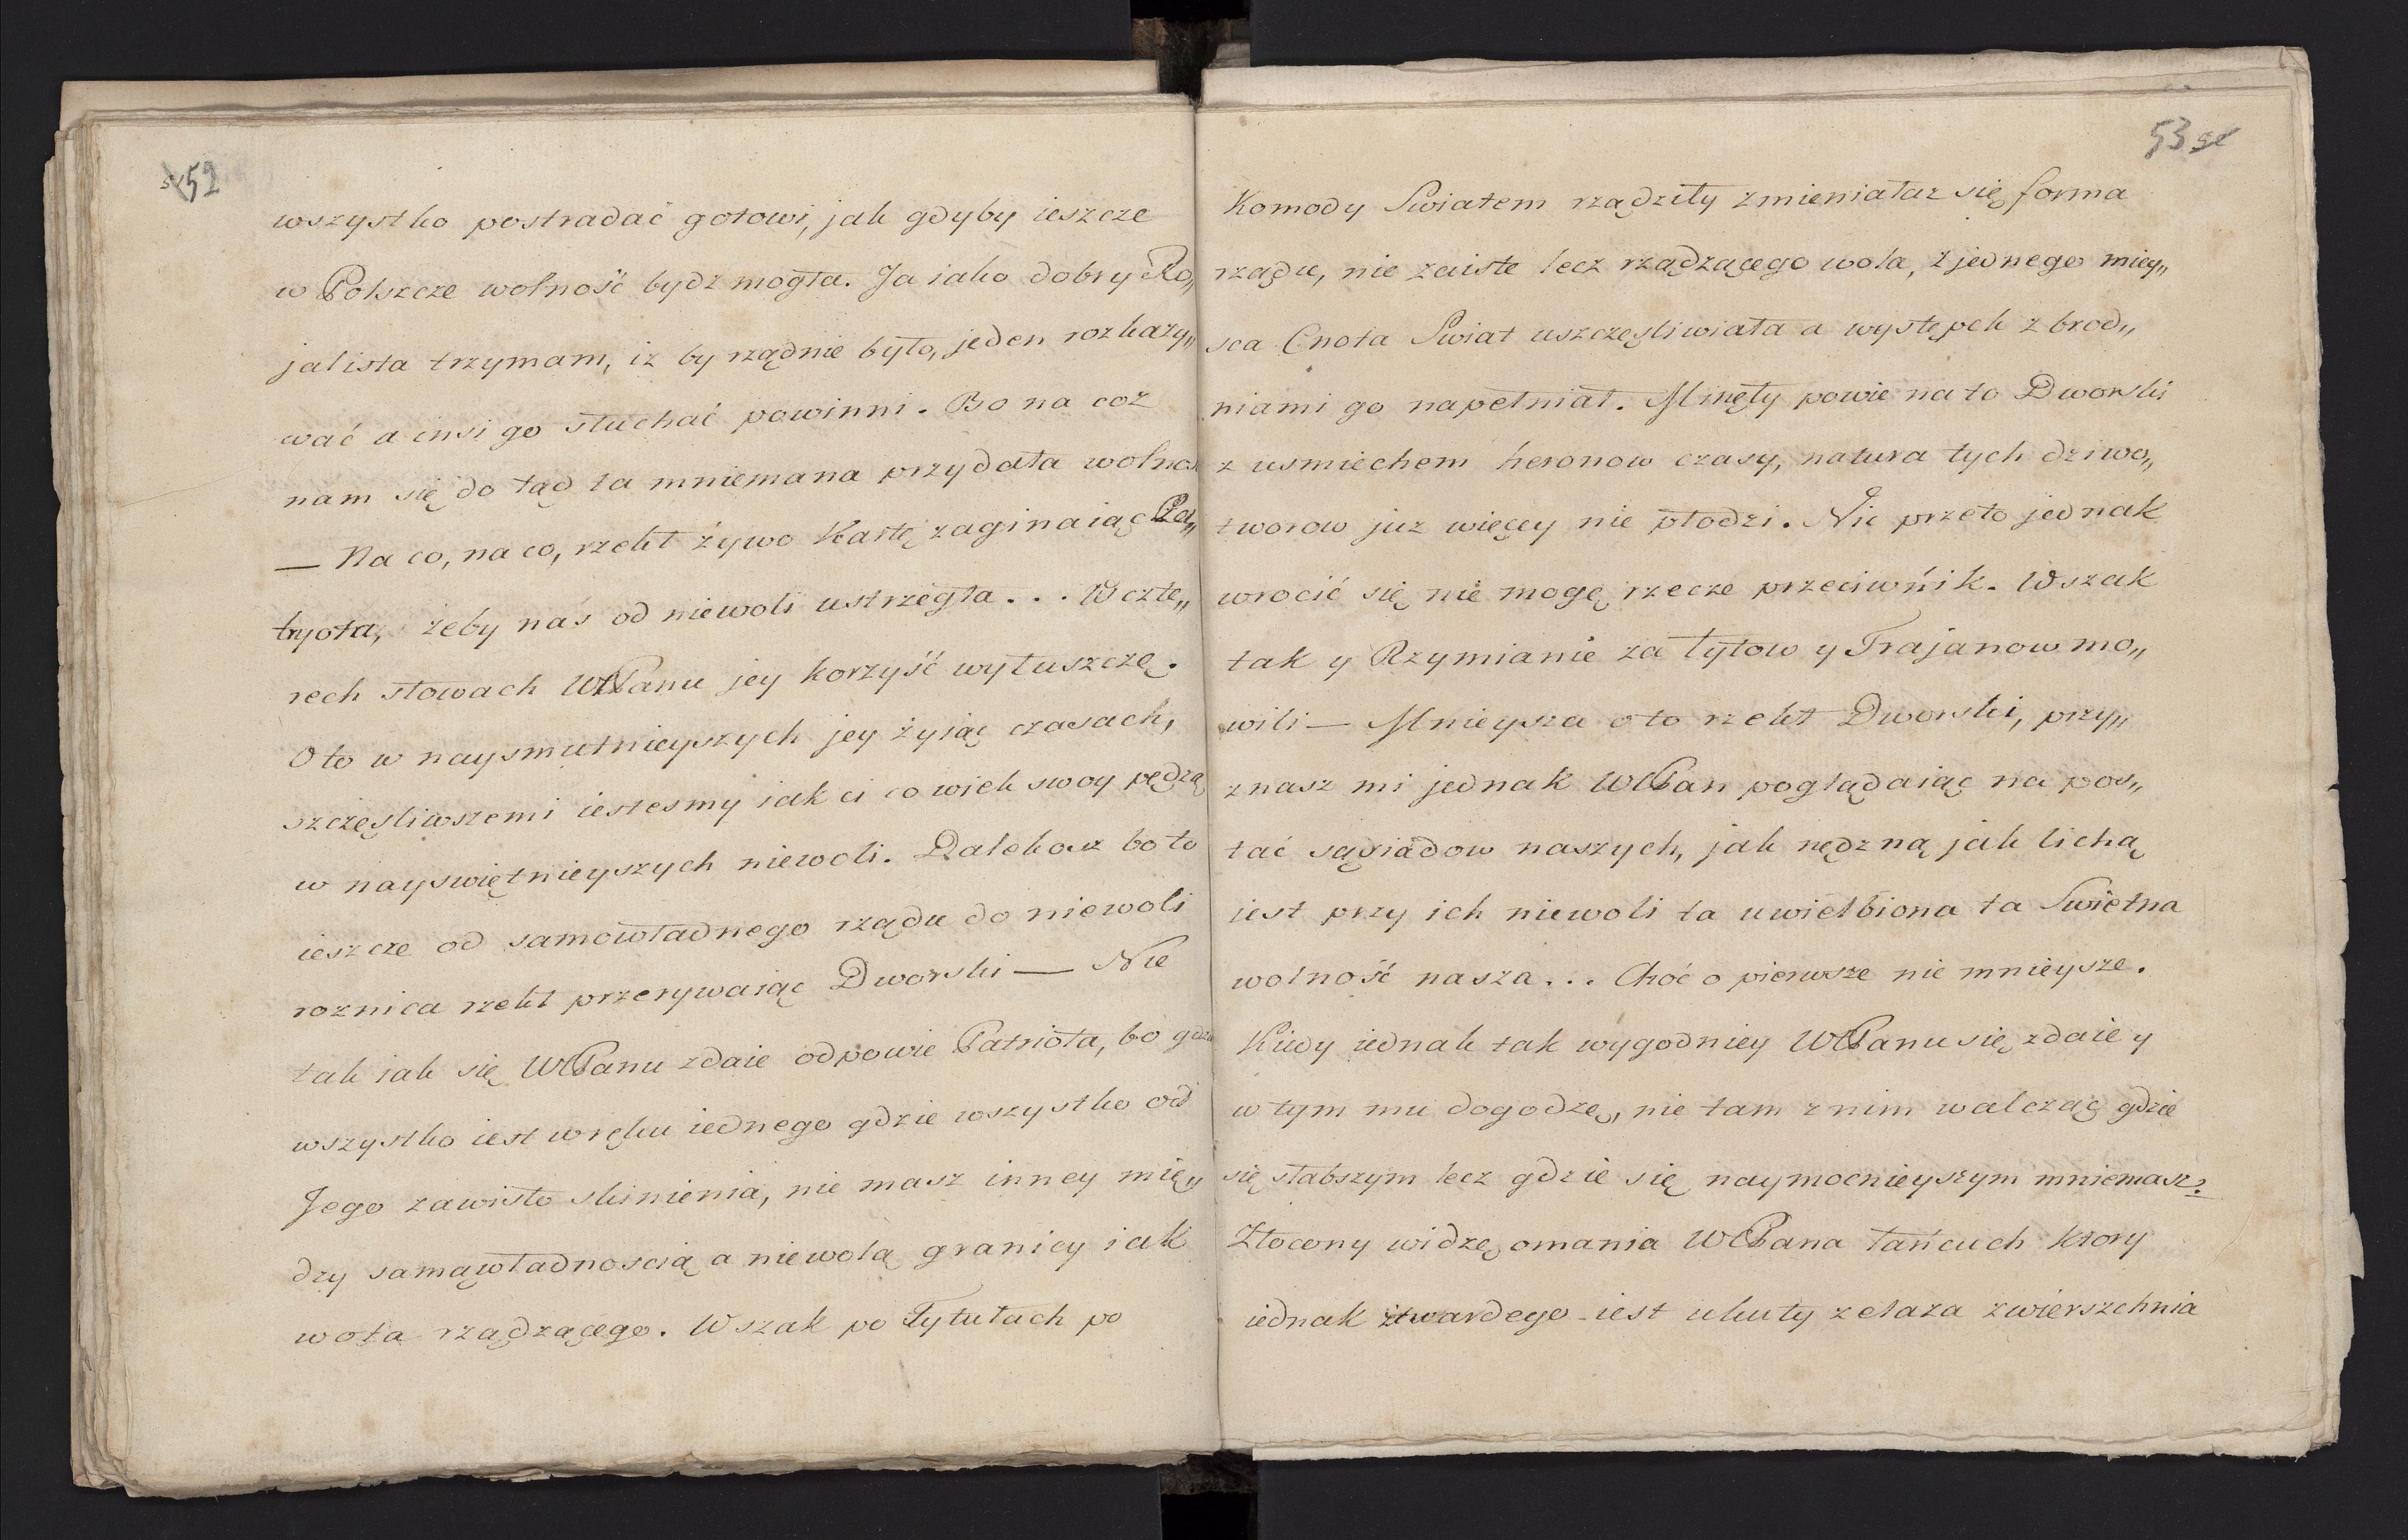 52
wszystko postradać gotowi, jak gdyby ieszcze
w Polszcze wolność bydz mogła. Ja iako dobry Ro„
jalista trzymam, iz by rządnie było, jeden rozkazy„
wać a insi go słuchać powinni. Bo na coz
nam się do tąd ta mniemana przydała wolnos
— Na co, na co, rzekł żywo Kartę zaginaiąc Pa„
tryota, żeby nas od niewoli ustrzegła... W czte„
rech słowach WPanu jey korzyść wyłuszczę.
Oto w naysmutnieyszych jey żyiąc czasach,
szczęsliwszemi iestesmy iak ci co wiek swoy pędzą
w nayswiętnieyszych niewoli. Dalekosz bo to
ieszcze od samowładnego rządu do niewoli
roznica rzekł przerywaiąc Dworski — Nie
tak iak się WPanu zdaie odpowie Patriota, bo gdzie
wszystko iest w ręku iednego gdzie wszystko od
Jego zawisło skinienia, nie masz inney mię„
dzy samąwładnoscią a niewolą granicy iak
wola rządzącego. Wszak po Tytułach po
53
Komody Swiatem rządziły zmieniałaz się forma
rządu, nie zaiste lecz rządzącego wola, z jednego miey„
sca Cnota Swiat uszczęsliwiała a występek zbrod„
niami go napełniał. Minęły powie na to Dworski
z usmiechem heronow czasy, natura tych dziwo„
tworow juz więcey nie płodzi. Nic przeto jednak
wrocić się nie mogę rzecze przeciwńik. Wszak
tak y Rzymianie za Tytow y Trajanow mo„
wili — Mnieysza o to rzekł Dworski, przy„
znasz mi jednak WPan poglądaiąc na pos„
tać sąsiadow naszych, jak nędzną jak lichą
iest przy ich niewoli ta uwielbiona ta Swietna
wolność nasza... Choć o pierwsze nie mnieysze.
Kiedy iednak tak wygodniey WPanu się zdaie y
w tym mu dogodzę, nie tam z nim walcząc gdzie
się słabszym lecz gdzie się naymocnieyszym mniemasz?
Złocony widzę omania WPana łańcuch ktory
iednak ztwardego iest ukuty zelaza zwierszchnia